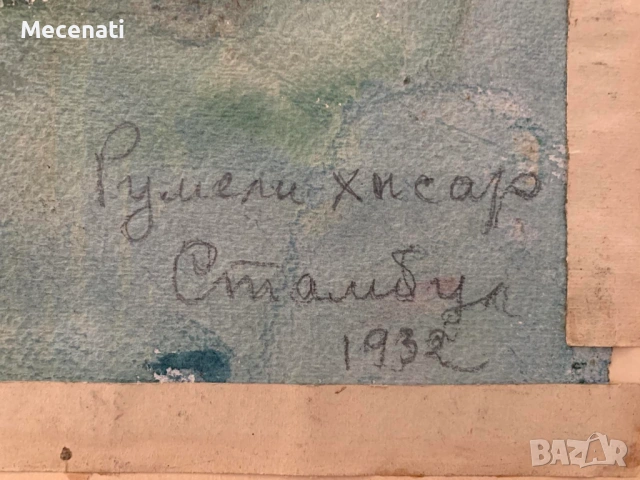 Mecenati
Румели хисар
Стамбул
1932
BAZAR